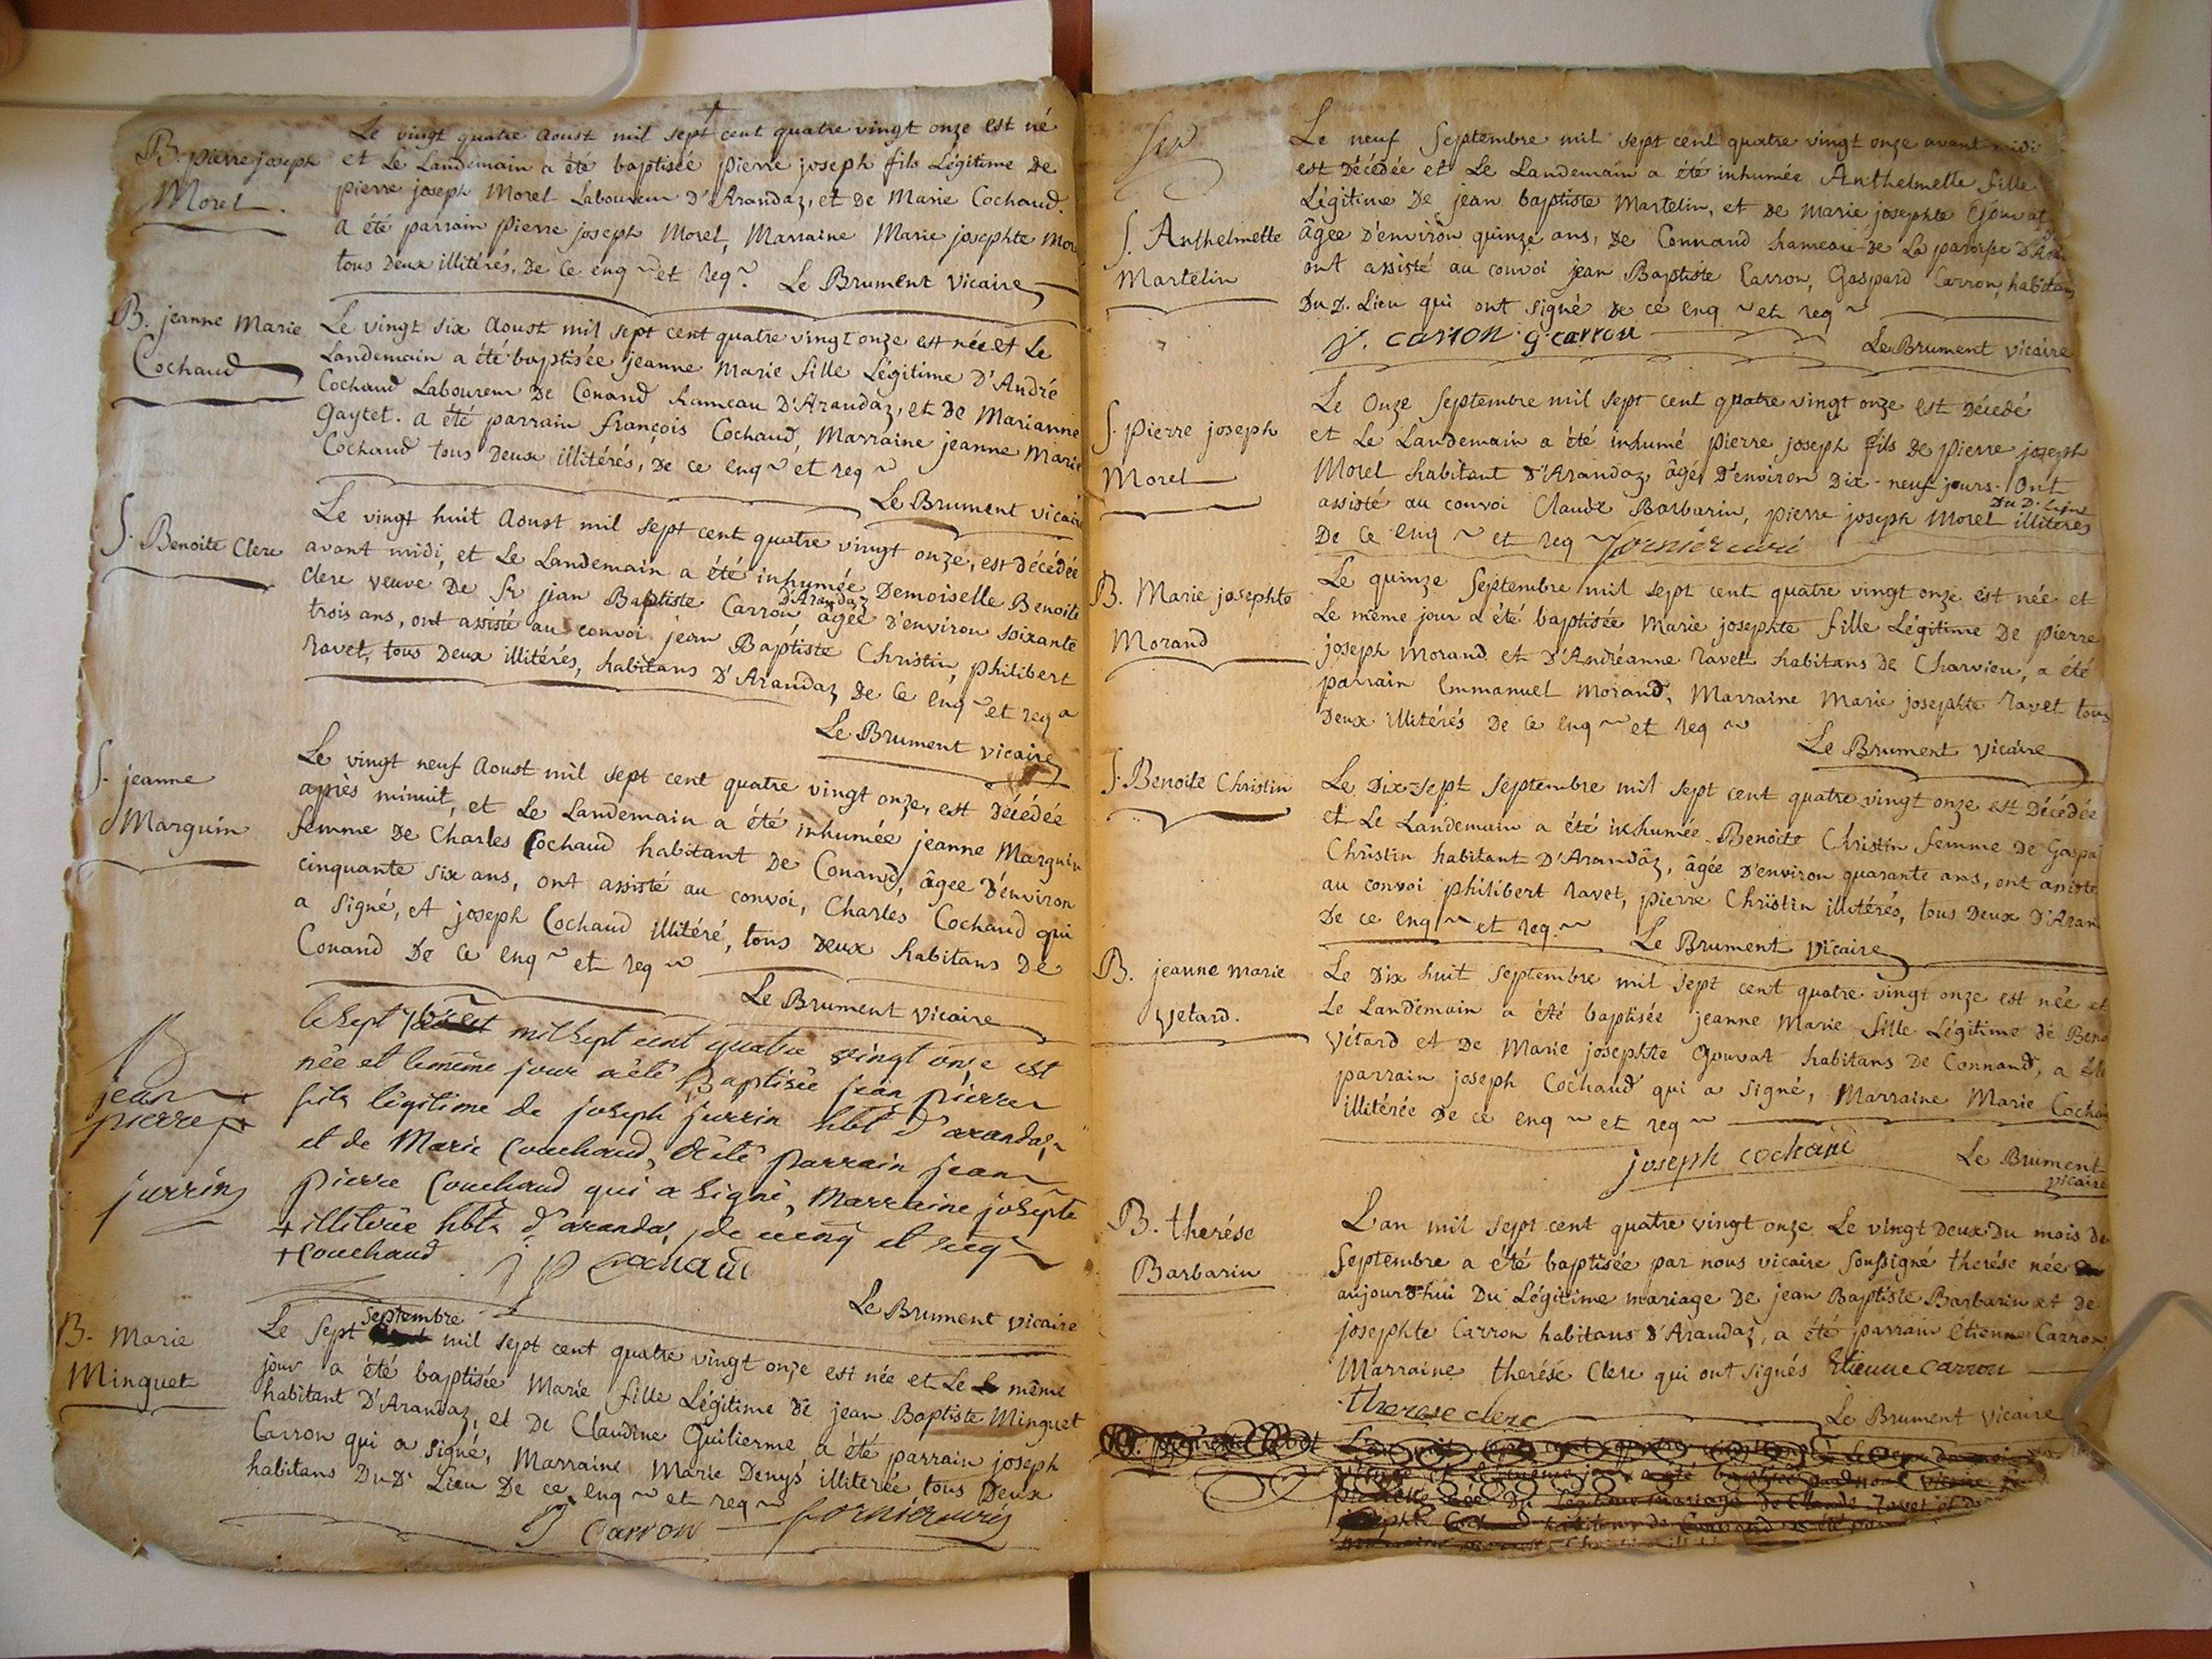 B. pierre joseph
Morel.
Le vingt quatre aoust mil sept cent quatre vingt onze est né
et Le Landemain a été baptisée pierre joseph fils Légitime De
pierre joseph Morel Laboureur D'Arandaz, et de Marie Cochaud.
a été parrain pierre joseph Morel, Marraine Marie josephte Mor
tous Deux illitérés, De Ce enq~ et req~. Le Brument vicaire
B. jeanne Marie
Cochaud
Le vingt six aoust mil sept cent quatre vingt onze est née et Le
Landemain a été baptisée jeanne Marie fille Légitime D'André
Cochaud Laboureur De Conand hameau D'Arandaz, et De Marianne
Gaytet. a été parrain françois Cochaud, Marraine jeanne Marie
Cochaud tous Deux illitérés, De ce enq~ et req~
Le Brument vicaire
S. Benoite Clerc
Le vingt huit aoust mil sept cent quatre vingt onze, est Décédée
avant midi, et Le Landemain a été inhumée Demoiselle Benoite
Clerc veuve De Sr jean Baptiste Carron D'Arandaz âgée D'environ soixante
trois ans, ont assisté au convoi jean Baptiste Christin, philibert
Ravet, tous Deux illitérés, habitans D'Arandaz De Ce enq~ et req~
Le Brument vicaire
S. jeanne
Marguin
Le vingt neuf aoust mil sept cent quatre vingt onze, est Décédée
après minuit, et Le Landemain a été inhumée jeanne Marguin
femme De Charles Cochaud habitant De Conand, âgée D'environ
cinquante six ans, ont assisté au convoi, Charles Cochaud qui
a Signé, et joseph Cochaud illitéré, tous Deux habitans De
Conand De Ce enq~ et req~
Le Brument vicaire
B
jean
pierre
jurrin
le sept 7bre mil sept cent quatre vingt onze est
née et le même jour a été Baptisée jean pierre
fils légitime de joseph jurrin hbt d'arandas
et de Marie Couchaud, a été parrain jean
pierre Couchaud qui a signé, marraine josepte
+ illitérée hbts d'arandas, de ce enq et req
+ Couchaud j p cochaud
Le Brument vicaire
B. Marie
Minguet
Le Sept Septembre mil sept cent quatre vingt onze est née et Le même
jour a été baptisée Marie fille Légitime de jean Baptiste Minguet
habitant D'Arandaz, et De Claudine Guilierme a été parrain joseph
Carron qui a signé, Marraine Marie Denys illiterée tous Deux
habitans Du D. Lieu De ce enq~ et req~
J Carron fornier curé
S. Anthelmette
Martelin
Le neuf Septembre mil sept cent quatre vingt onze avant midi
est Décédée et Le Landemain a été inhumée Anthelmette fille
Légitime De jean baptiste Martelin, et De Marie josephte Gouvat
âgée D'environ quinze ans, De Connand hameau De La paroisse D'Aran
ont assisté au convoi jean Baptiste Carron, Gaspard Carron, habitans
Du D. Lieu qui ont signé De ce enq~ et req~
J. carron g carron Le Brument vicaire
S. pierre joseph
Morel
Le Onze Septembre mil sept cent quatre vingt onze est Décedé
et Le Landemain a été inhumé pierre joseph fils De pierre joseph
Morel habitant D'Arandaz, âgé D'environ Dix-neuf jours. Ont
assisté au convoi Claude Barbarin, pierre joseph Morel Du D. Lieu illiterés
De Ce enq~ et req~ fornier curé
B. Marie josephte
Morand
Le quinze Septembre mil sept cent quatre vingt onze est née et
Le même jour a été baptisée Marie josephte fille Légitime De pierre
joseph Morand et D'Andréanne Ravet habitans De Charvieu, a été
parrain Emmanuel Morand, Marraine Marie josephte Ravet tous
Deux illitérés De Ce enq~ et req~
Le Brument vicaire
S. Benoite Christin
Le Dix-sept Septembre mil sept cent quatre vingt onze est Décédée
et Le Landemain a été inhumée Benoite Christin femme De Gaspa
Christin habitant D'Arandaz, âgée D'environ quarante ans, ont assisté
au convoi philibert Ravet, pierre Christin illitérés, tous Deux D'Aran
De ce enq~ et req~ Le Brument vicaire
B. jeanne marie
Vetard.
Le Dix huit Septembre mil sept cent quatre vingt onze est née et
Le Landemain a été baptisée jeanne Marie fille Légitime de Beno
Vétard et De Marie josephte Gouvat habitans De Connand, a été
parrain joseph Cochaud qui a signé, Marraine Marie Cochau
illitérée De ce enq~ et req~
joseph cochaud Le Brument
vicaire
B. therése
Barbarin
L'an mil sept cent quatre vingt onze Le vingt Deux Du mois De
Septembre a été baptisée par nous vicaire Soussigné therése née
aujourd'hui Du Légitime mariage De jean Baptiste Barbarin et De
josephte Carron habitans D'Arandaz, a été parrain Etienne Carron
Marraine therése Clerc qui ont signés Etienne carron
Therese clerc Le Brument vicaire